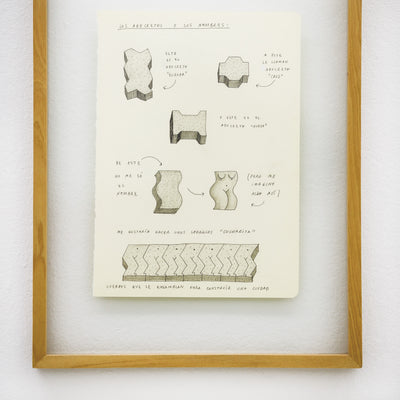 LOS ADOCRETOS Y SUS NOMBRES:
ESTE
ES EL
ADOCRETO
A ESTE
LE LLAMAN
ADOCRETO
"CRUZ"
Y ESTE ES EL
ADOCRETO "HUESO"
DE ESTE
NO ME SÉ
EL
NOMBRE
(PERO ME
IMAGINO
ALGO ASÍ)
ME GUSTARÍA HACER UNOS LLAMADOS "CUCHARITA"
CUERPOS QUE SE ENSAMBLAN PARA CONSTRUIR UNA CIUDAD